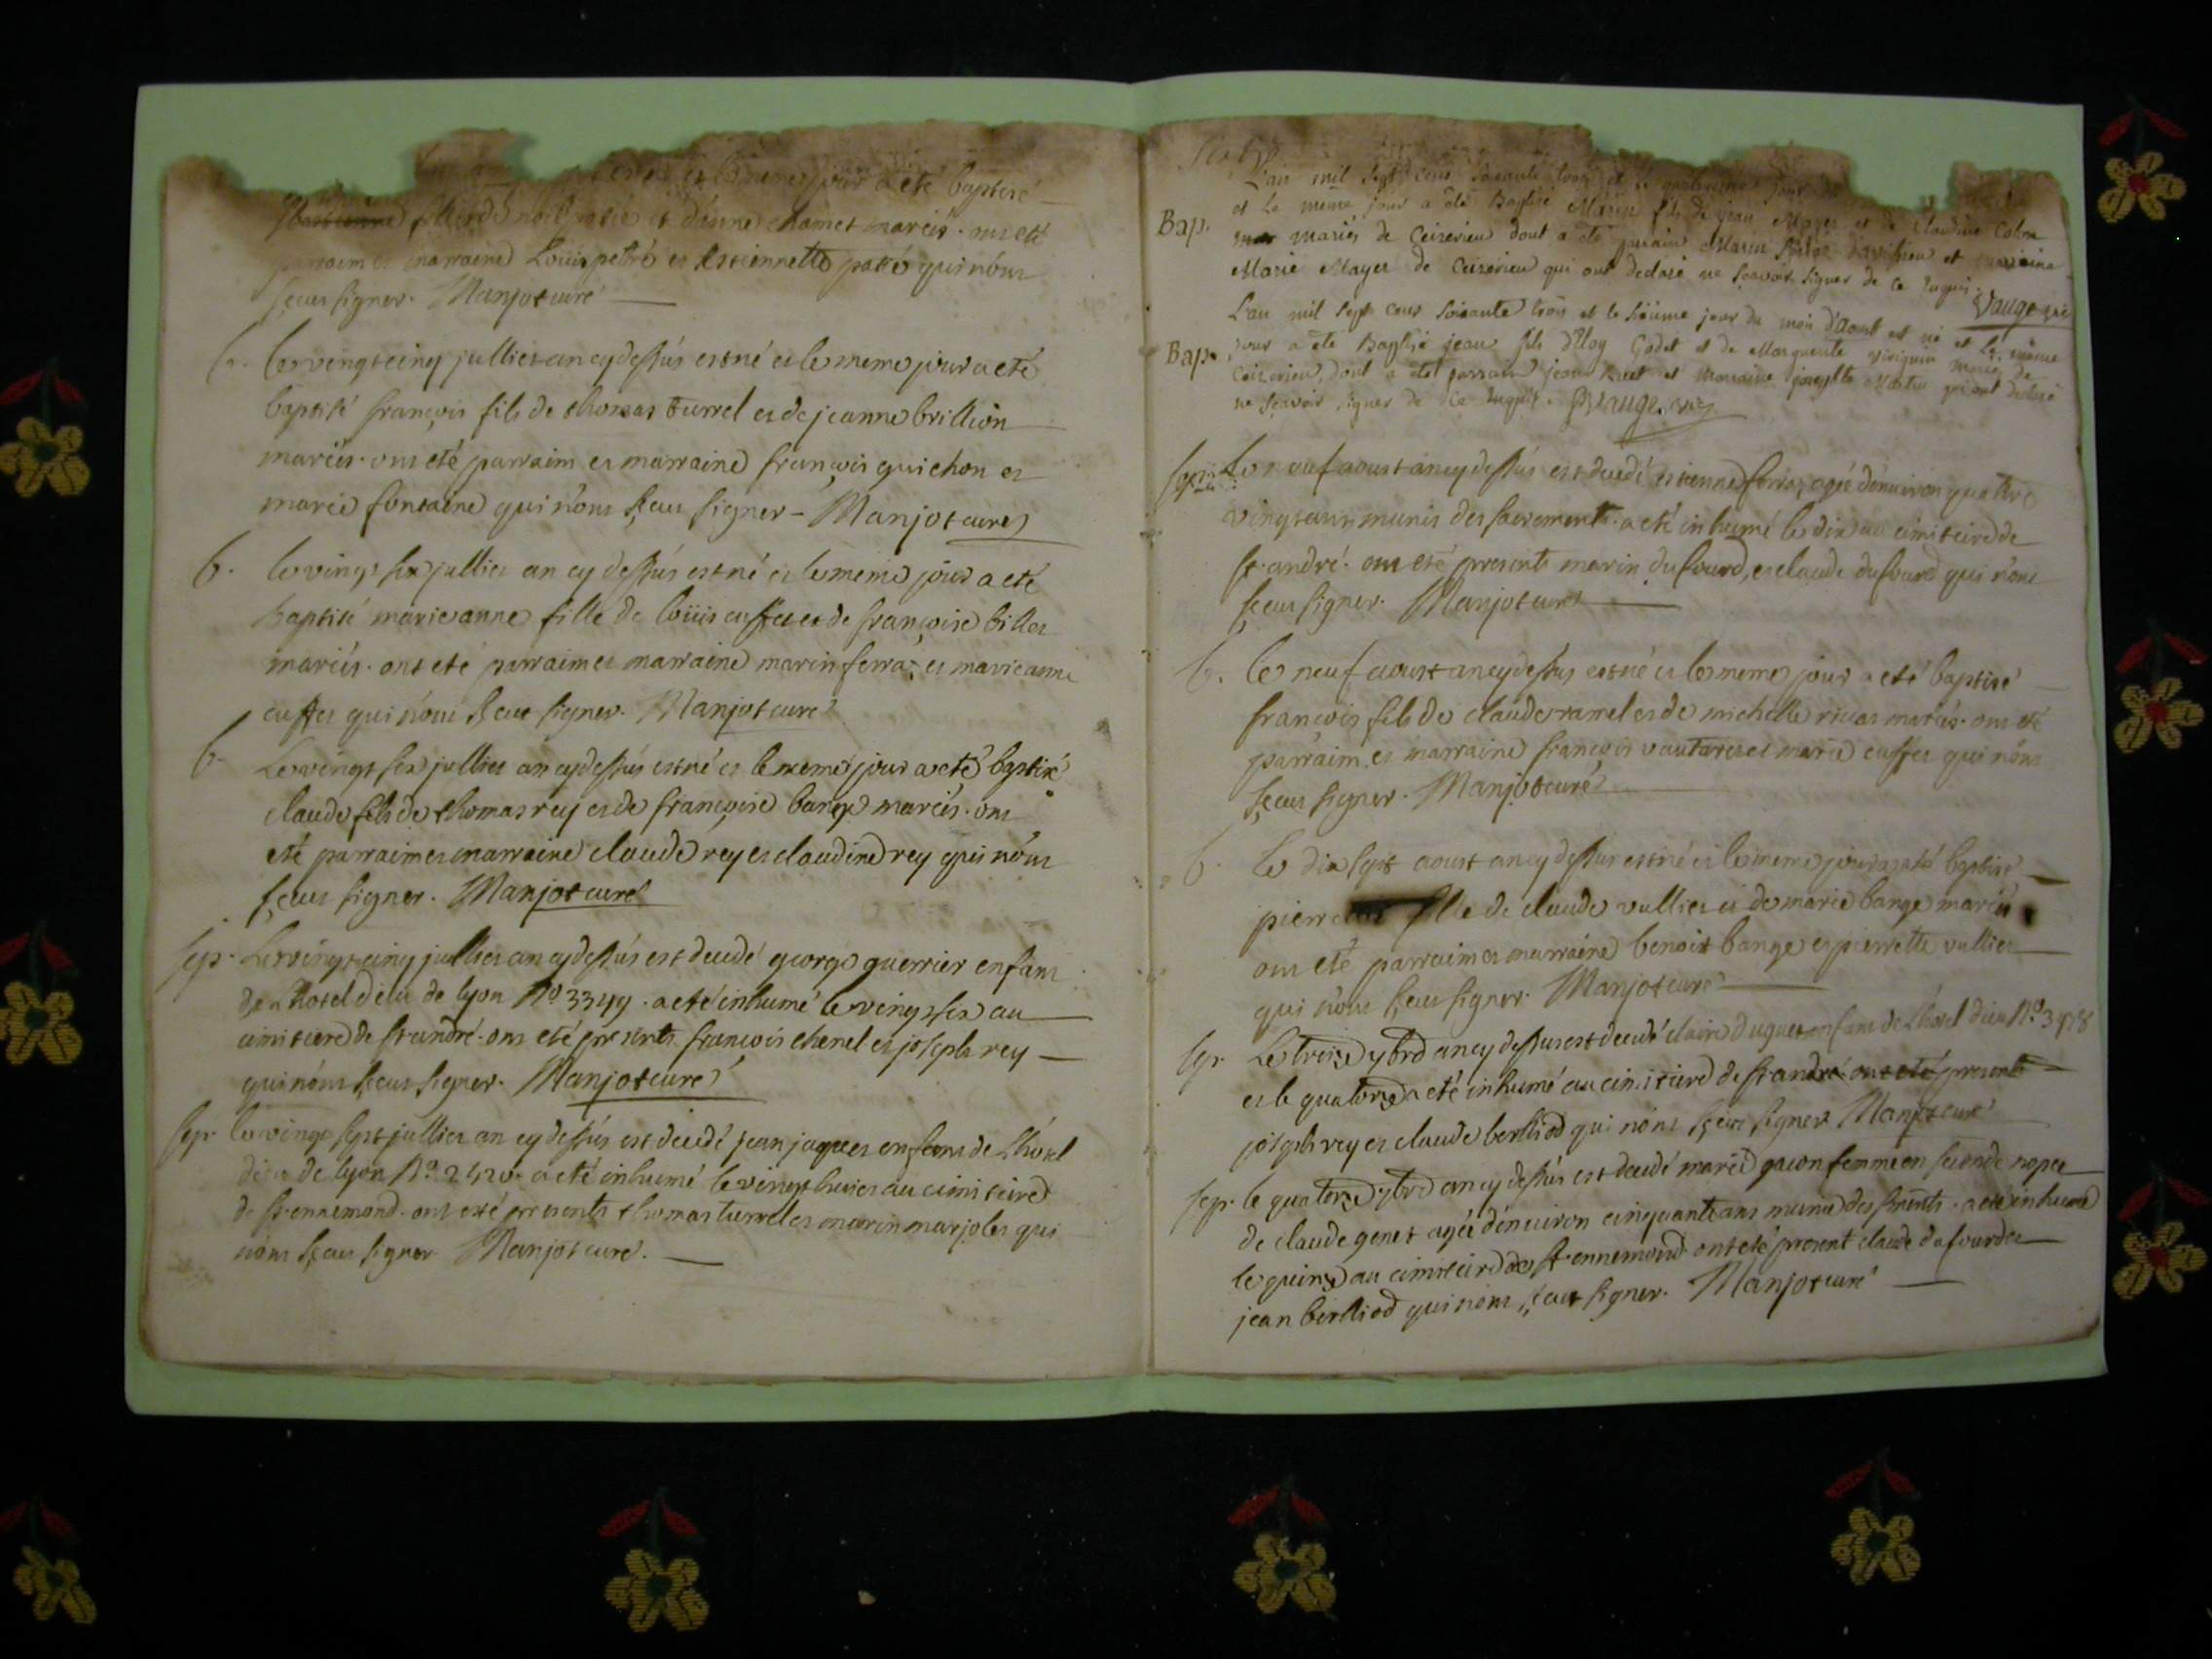 et le meme jour a eté baptisé
fille de noel patié et d'anne chamet mariés. ont eté
parraim et marraine Loüis petré et Estiennette patié qui n'ont
sceut signer. Manjot curé
b. le vingt cinq julliet an cy dessus est né et le meme jour a eté
baptisé françois fils de thomas turrel et de jeanne brillion
mariés. ont eté parraim et marraine françois guichon et
marie fontaine qui n'ont sceu signer - Manjot curé
b. le vingt six julliet an cy dessus est né et le meme jour a eté
baptisé marie anne fille de loüis cusset et de françoise billet
mariés. ont eté parraim et marraine marin ferra, et marie anne
cusset qui n'ont sceut signer. Manjot curé
b. Le vingt six julliet an cy dessus est né et le meme jour a eté baptisé
claude fils de thomas rey et de françoise bange mariés. ont
eté parraim et marraine claude rey et claudine rey qui n'ont
sceut signer. Manjot curé
sep. Le vingt cinq julliet an cy dessus est decedé george guerrier enfant
de l'hotel dieu de lyon No. 3349. a eté inhumé le vingt six au
cimitiere de st andré. ont eté presents françois chenel et joseph rey
qui n'ont sceut signer. Manjot curé
sep. le vingt sept julliet an cy dessus est decedé jean jaques enfant de l'hotel
dieu de lyon No. 2420. a eté inhumé le vingt huict au cimitiere
de st ennemond. ont eté presents thomas turrel et marin marjolet qui
n'ont sceut signer Manjot curé.
L'an mil sept cens soixante trois et le jour
et le meme jour a été Baptisé Marin fils de jean Mayer et de Claudine Colon
mariés de Ceizerieu dont a été parain Marin et marraine
Marie Mayer de Ceizerieu qui ont declaré ne sçavoir signer de ce requis.
Vauge vic
Bap.
L'an mil sept cens soixante trois et le sixieme jour du mois d'Aoust est né et le même
Bap. jour a été Baptisé jean fils d'Eloy Godet et de Marguerite mariés de
Ceizerieu, dont a été parrain jean et Marraine qui ont declaré
ne sçavoir signer de ce requis. Vauge vic
sep. Le neuf aoust an cy dessus est decedé estienne ferra, agé d'enuiron quatre
vingt ans munis des sacrements. a eté inhumé le dix au cimitiere de
st. andré. ont eté presents marin dufourd, et claude dufourd qui n'ont
sceut signer. Manjot curé
b. le neuf aoust an cy dessus est né et le meme jour a eté baptisé
françois fils de claude ramel et de michelle mariés. ont eté
parraim et marraine françois vautaret et marie cusset qui n'ont
sceut signer. Manjot curé
b. le dix sept aoust an cy dessus est né et le meme jour a eté baptisé
pierre fille de claude vulliet et de marie bange mariés
ont eté parraim et marraine benoist bange et pierrette vulliet
qui n'ont sceut signer. Manjot curé
sep. Le treize 7bre an cy dessus est decedé claire duguet enfant de l'hotel dieu No.
et le quatorze a eté inhumé au cimitiere de st andré. ont eté presents
joseph rey et claude berlliod qui n'ont sceut signer Manjot curé
sep. le quatorze 7bre an cy dessus est decedé marie gacon femme en seconde nopce
de claude genet agée d'enuiron cinquante ans munie des sacrements. a eté inhumé
le quinze au cimitiere de st ennemond. ont eté present claude dufourd et
jean berlliod qui n'ont sceut signer. Manjot curé